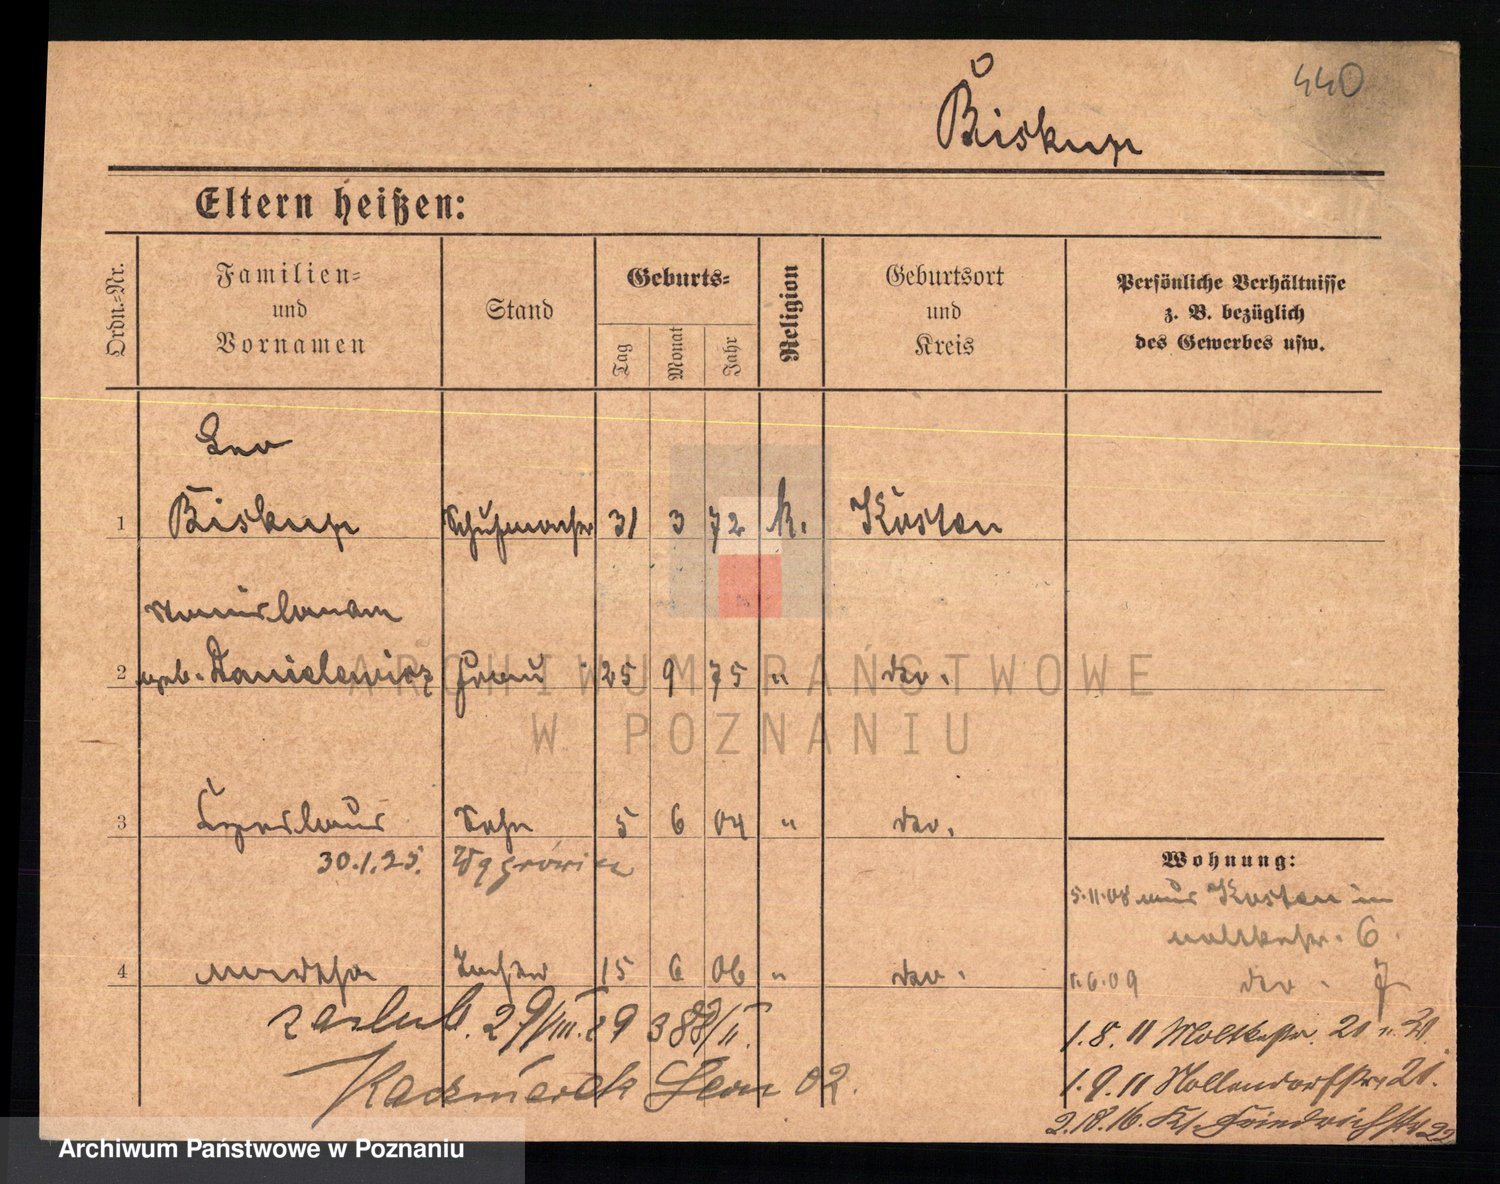 440
Biskup
Eltern heißen:
Ordn.-Nr.
Familien-
und
Vornamen
Stand
Geburts-
Tag
Monat
Jahr
Religion
Geburtsort
und
Kreis
Persönliche Verhältnisse
z. B. bezüglich
des Gewerbes usw.
Leo
1 Biskup Schuhmacher 31 3 72 k. Kosten
Stanislawa
2 geb. Danielewicz Frau 25 9 75 " do.
3 Czeslaus Sohn 5 6 04 " do.
30.1.25. Wągrówiec
Wohnung:
5.11.08 aus Kosten in
Moltkestr. 6
4 Tochter 15 6 06 " do.
1.6.09 do.
zaślub. 29/VIII.29 388/II.
1.8.11 Moltkestr. 20
Kaczmarek Leon 02.
1.9.11 Hollendorfstr. 21.
2.18.16. Kl. Friedrichstr 22
ARCHIWUM PAŃSTWOWE
W POZNANIU
Archiwum Państwowe w Poznaniu